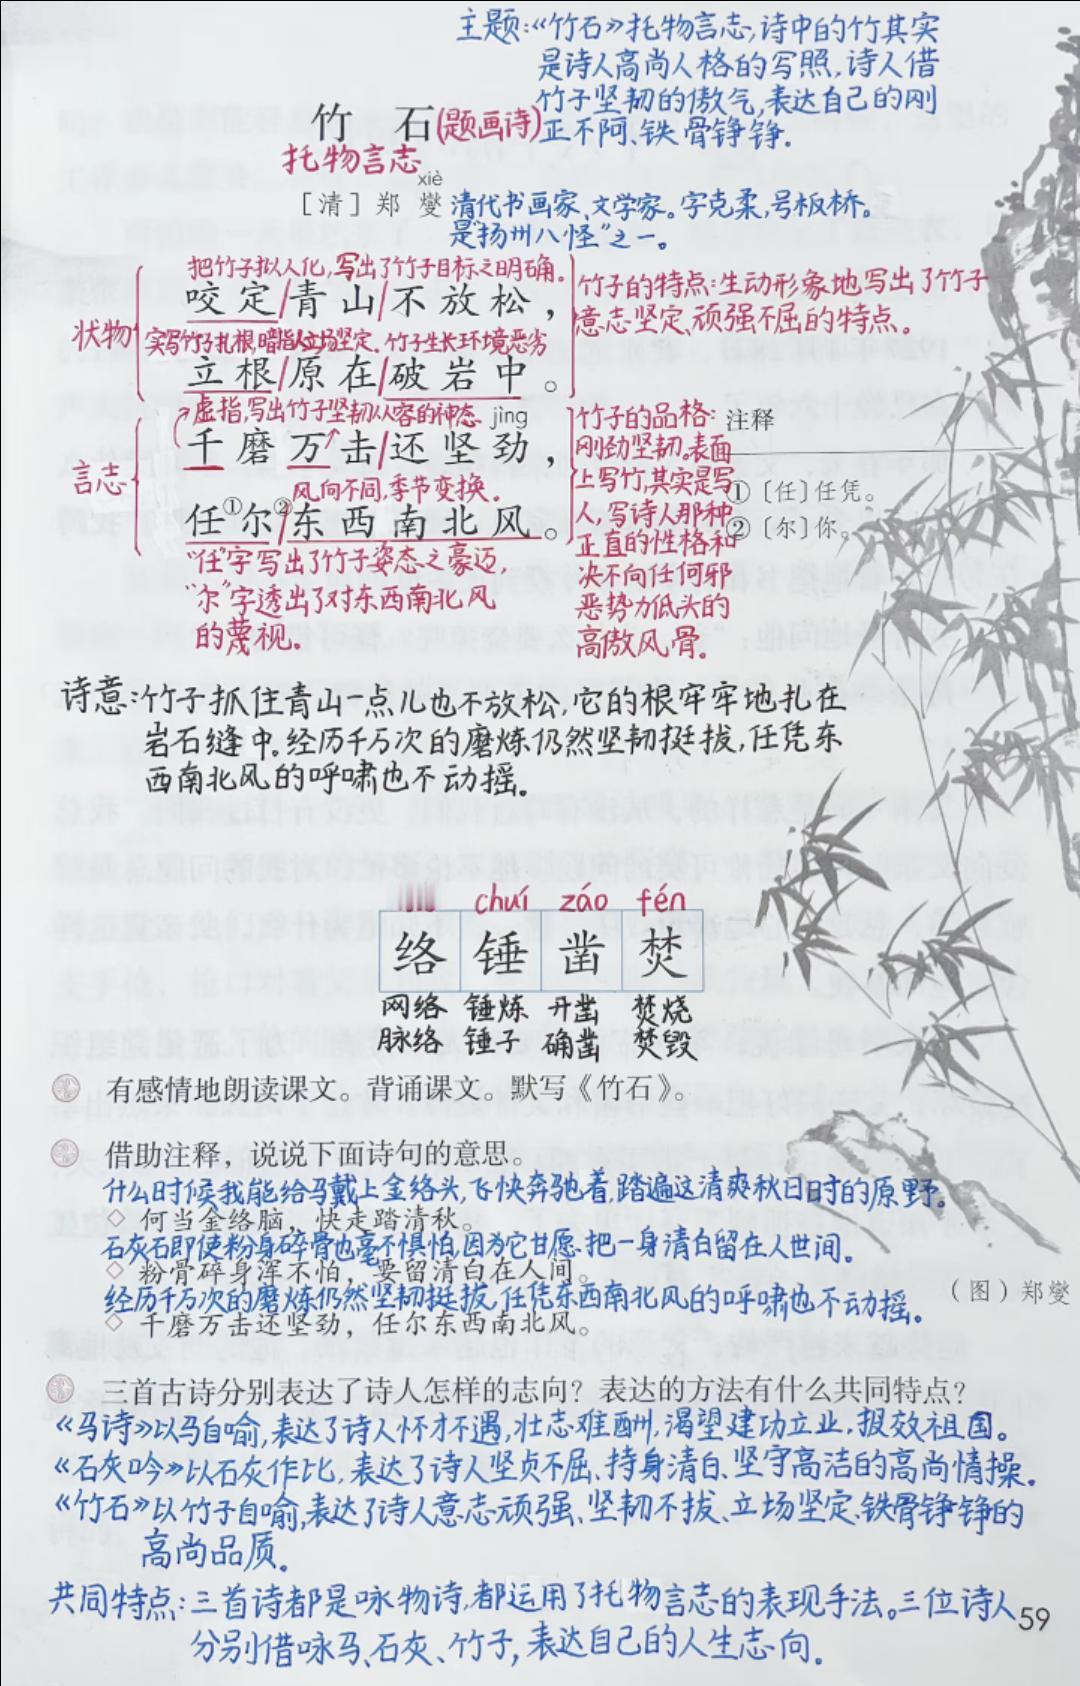 主题:《竹石》托物言志,诗中的竹其实
是诗人高尚人格的写照,诗人借
竹子坚韧的傲气,表达自己的刚
正不阿、铁骨铮铮。
竹 石(题画诗)
托物言志
xiè
[清] 郑 燮 清代书画家、文学家。字克柔,号板桥。
是"扬州八怪"之一。
把竹子拟人化,写出了竹子目标之明确。
状物
咬定/青山/不放松,
竹子的特点:生动形象地写出了竹子
意志坚定、顽强不屈的特点。
实写竹子扎根,暗指人立场坚定、竹子生长环境恶劣
立根/原在/破岩中。
虚指,写出竹子坚韧从容的神态 jìng
言志
千磨万击/还坚劲,
风向不同,季节变换。
任①尔②/东西南北风。
"任"字写出了竹子姿态之豪迈,
"尔"字透出了对东西南北风
的蔑视。
竹子的品格:
刚劲坚韧,表面
上写竹,其实是写
人,写诗人那种
正直的性格和
决不向任何邪
恶势力低头的
高傲风骨。
注释
①〔任〕任凭。
②〔尔〕你。
诗意:竹子抓住青山一点儿也不放松,它的根牢牢地扎在
岩石缝中。经历千万次的磨炼仍然坚韧挺拔,任凭东
西南北风的呼啸也不动摇。
chuí záo fén
络 锤 凿 焚
网络 锤炼 开凿 焚烧
脉络 锤子 确凿 焚毁
有感情地朗读课文。背诵课文。默写《竹石》。
借助注释,说说下面诗句的意思。
什么时候我能给马戴上金络头,飞快奔驰着,踏遍这清爽秋日时的原野。
◇ 何当金络脑,快走踏清秋。
石灰石即使粉身碎骨也毫不惧怕,因为它甘愿把一身清白留在人世间。
◇ 粉骨碎身浑不怕,要留清白在人间。
经历千万次的磨炼仍然坚韧挺拔,任凭东西南北风的呼啸也不动摇。
◇ 千磨万击还坚劲,任尔东西南北风。
(图)郑燮
三首古诗分别表达了诗人怎样的志向?表达的方法有什么共同特点?
《马诗》以马自喻,表达了诗人怀才不遇,壮志难酬,渴望建功立业,报效祖国。
《石灰吟》以石灰作比,表达了诗人坚贞不屈、持身清白、坚守高洁的高尚情操。
《竹石》以竹子自喻,表达了诗人意志顽强、坚韧不拔、立场坚定、铁骨铮铮的
高尚品质。
共同特点:三首诗都是咏物诗,都运用了托物言志的表现手法。三位诗人
分别借咏马、石灰、竹子,表达自己的人生志向。
59